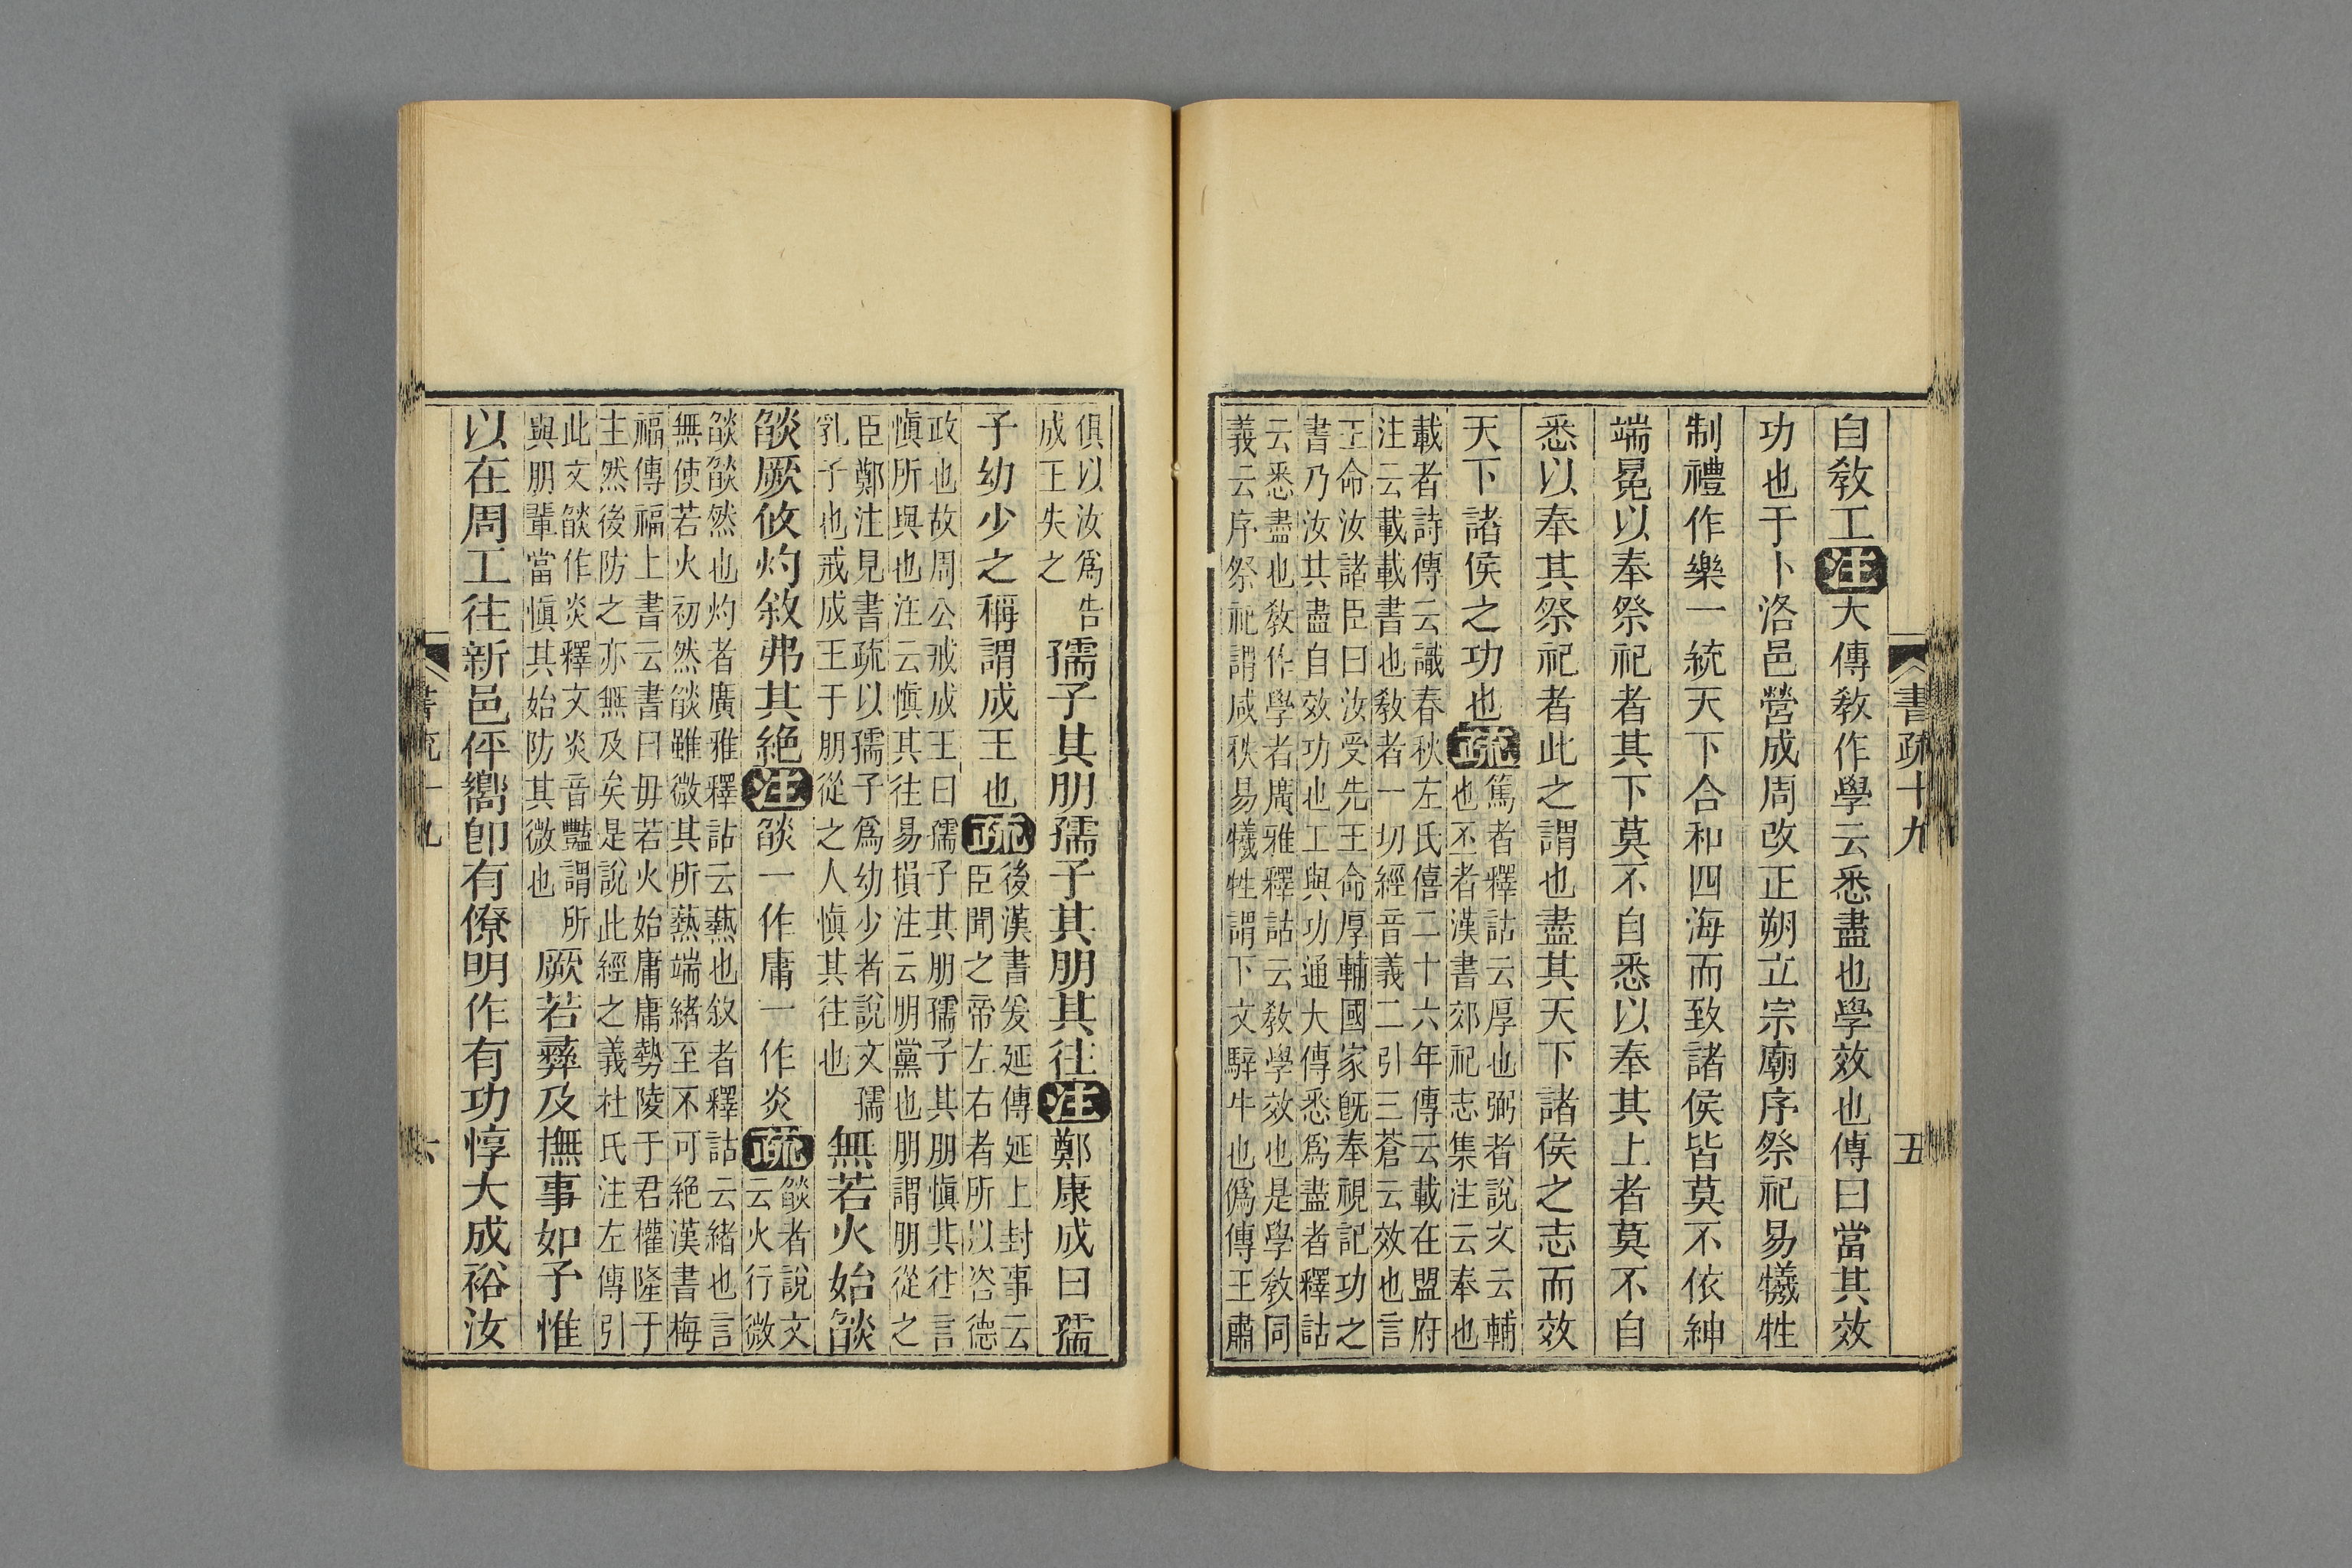 書疏十九
五
自敎工注大傳敎作學云悉盡也學效也傳曰當其效
功也于卜洛邑營成周改正朔立宗廟序祭祀易犧牲
制禮作樂一統天下合和四海而致諸侯皆莫不依紳
端冕以奉祭祀者其下莫不自悉以奉其上者莫不自
悉以奉其祭祀者此之謂也盡其天下諸侯之志而效
天下諸侯之功也疏
篤者釋詁云厚也弼者說文云輔
也丕者漢書郊祀志集注云奉也
載者詩傳云識春秋左氏僖二十六年傳云載在盟府
注云載載書也敎者一切經音義二引三蒼云效也言
王命汝諸臣曰汝受先王命厚輔國家旣奉視記功之
書乃汝其盡自效功也工與功通大傳悉爲盡者釋詁
云悉盡也敎作學者廣雅釋詁云敎學效也是學敎同
義云序祭祀謂咸秩易犧牲謂下文騂牛也僞傳王肅
俱以汝爲告
成王失之
孺子其朋孺子其朋其往注鄭康成曰孺
子幼少之稱謂成王也疏
後漢書爰延傳延上封事云
臣聞之帝左右者所以咨德
政也故周公戒成王曰孺子其朋孺子其朋愼其往言
愼所與也注云愼其往易損注云明黨也朋謂朋從之
臣鄭注見書疏以孺子爲幼少者說文孺
乳子也戒成王于朋從之人愼其往也
無若火始燄
燄厥攸灼敘弗其絕注燄一作庸一作炎疏
燄者說文
云火行微
燄燄然也灼者廣雅釋詁云爇也敘者釋詁云緖也言
無使若火初然燄雖微其所爇端緖至不可絕漢書梅
福傳福上書云書曰毋若火始庸庸勢陵于君權隆于
主然後防之亦無及矣是說此經之義杜氏注左傳引
此文燄作炎釋文炎音豔謂所
與朋輩當愼其始防其微也
厥若彝及撫事如予惟
以在周工往新邑伻嚮卽有僚明作有功惇大成裕汝
六